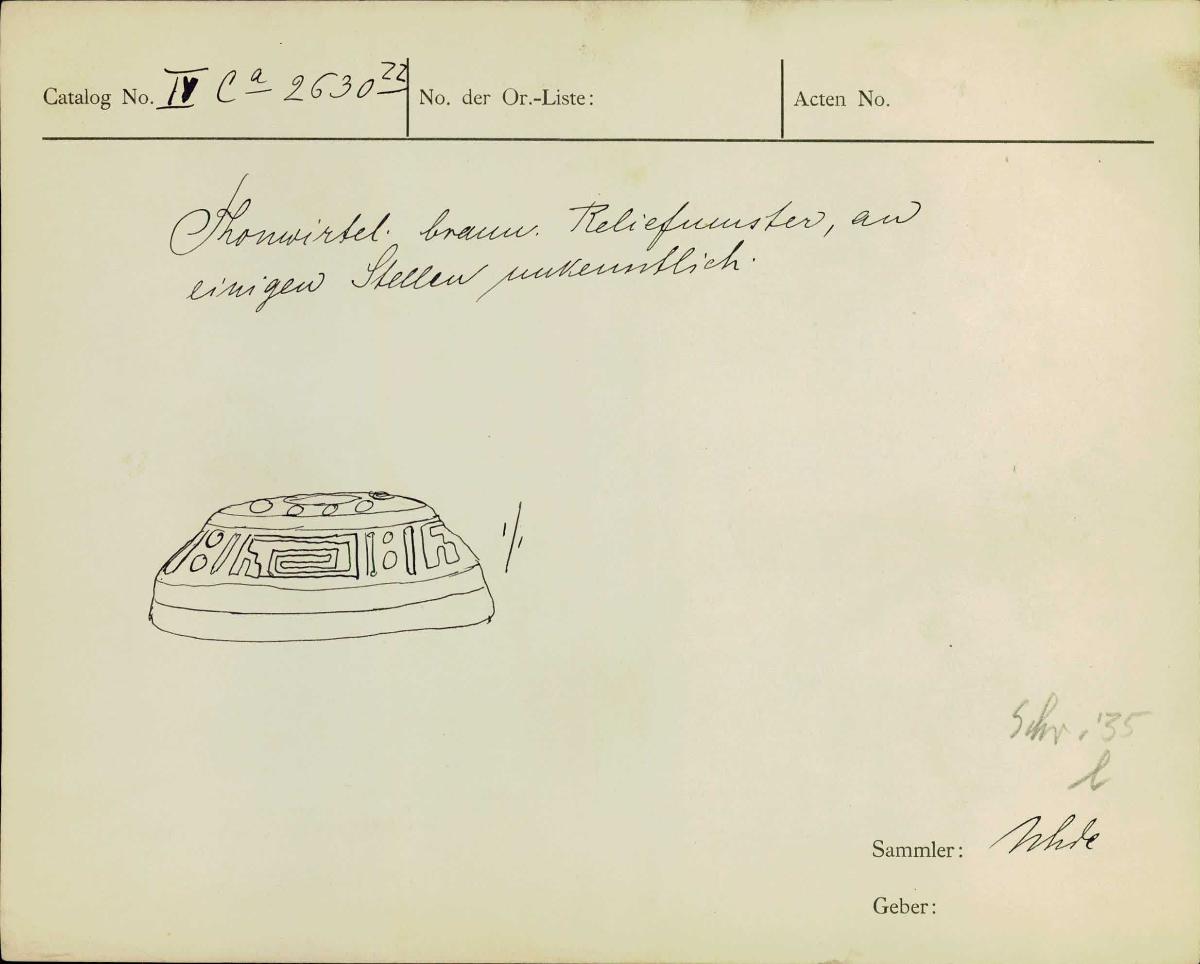 Catalog No. IV Ca 2630 22 No. der Or.-Liste: Acten No.
Thonwirtel. braun. Reliefmuster, an
einigen Stellen unkenntlich.
1/1
Schr. '35
l
Sammler: Uhde
Geber: